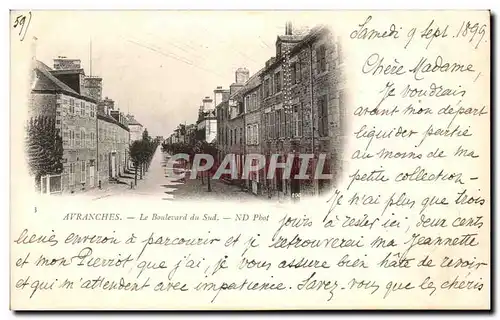 59)
Samedi 9 Sept. 1899
Chère Madame,
Je voudrais
avant mon départ
liquider partie
au moins de ma
petite collection —
Je n'ai plus que trois
jours à rester ici, deux cents
AVRANCHES. — Le Boulevard du Sud. — ND Phot
lieues environ à parcourir et je retrouverai ma Jeannette
et mon Pierrot que j'ai, je vous assure bien hâte de revoir
et qui m'attendent avec impatience. Savez-vous que les chéris
CARTE PHIL